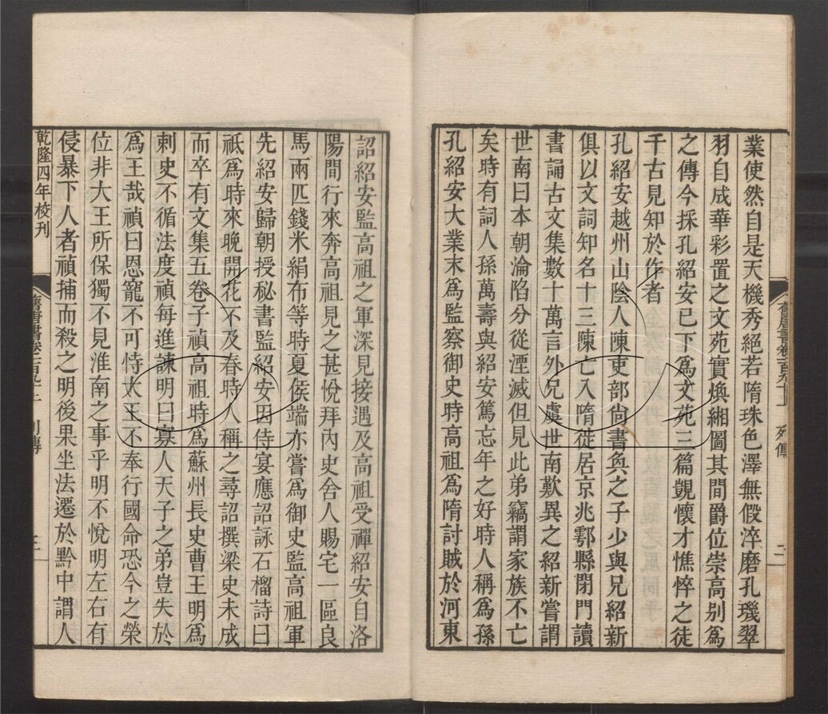 業使然自是天機秀絕若隋珠色澤無假淬磨孔璣翠
羽自成華彩置之文苑實煥緗圖其間爵位崇高別為
之傳今採孔紹安已下為文苑三篇覬懷才憔悴之徒
千古見知於作者
孔紹安越州山陰人陳吏部尚書奐之子少與兄紹新
俱以文詞知名十三陳亡入隋徙居京兆鄠縣閉門讀
書誦古文集數十萬言外兄虞世南歎異之紹新嘗謂
世南曰本朝淪陷分從湮滅但見此弟竊謂家族不亡
矣時有詞人孫萬壽與紹安篤忘年之好時人稱為孫
孔紹安大業末為監察御史時高祖為隋討賊於河東
舊唐書卷一百九十上 列傳 二
詔紹安監高祖之軍深見接遇及高祖受禪紹安自洛
陽間行來奔高祖見之甚悅拜內史舍人賜宅一區良
馬兩匹錢米絹布等時夏侯端亦嘗為御史監高祖軍
先紹安歸朝授秘書監紹安因侍宴應詔詠石榴詩曰
祇為時來晚開花不及春時人稱之尋詔撰梁史未成
而卒有文集五卷子禎高祖時為蘇州長史曹王明為
刺史不循法度禎每進諫明曰寡人天子之弟豈失於
為王哉禎曰恩寵不可恃大王不奉行國命恐今之榮
位非大王所保獨不見淮南之事乎明不悅明左右有
侵暴下人者禎捕而殺之明後果坐法遷於黔中謂人
乾隆四年校刊
舊唐書卷一百九十上 列傳 三